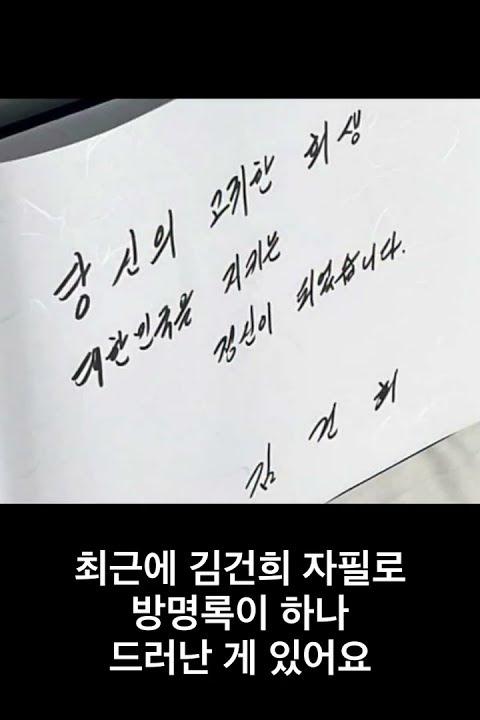 당신의 고귀한 희생
대한민국을 지키는
정신이 되었습니다.
김건희
최근에 김건희 자필로
방명록이 하나
드러난 게 있어요